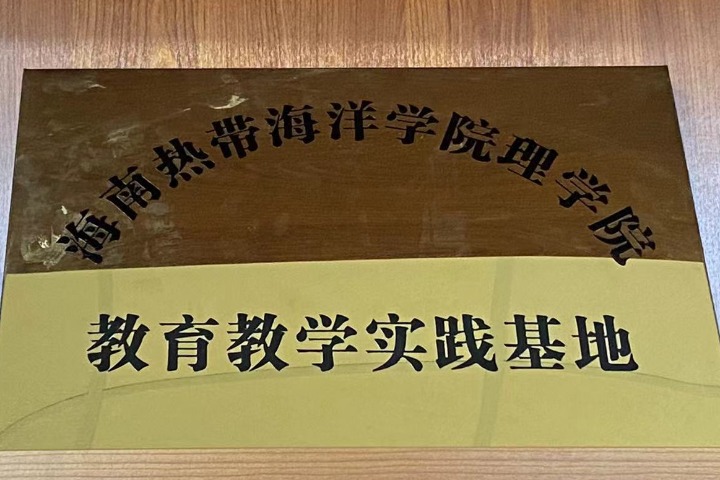 海南热带海洋学院理学院
教育教学实践基地